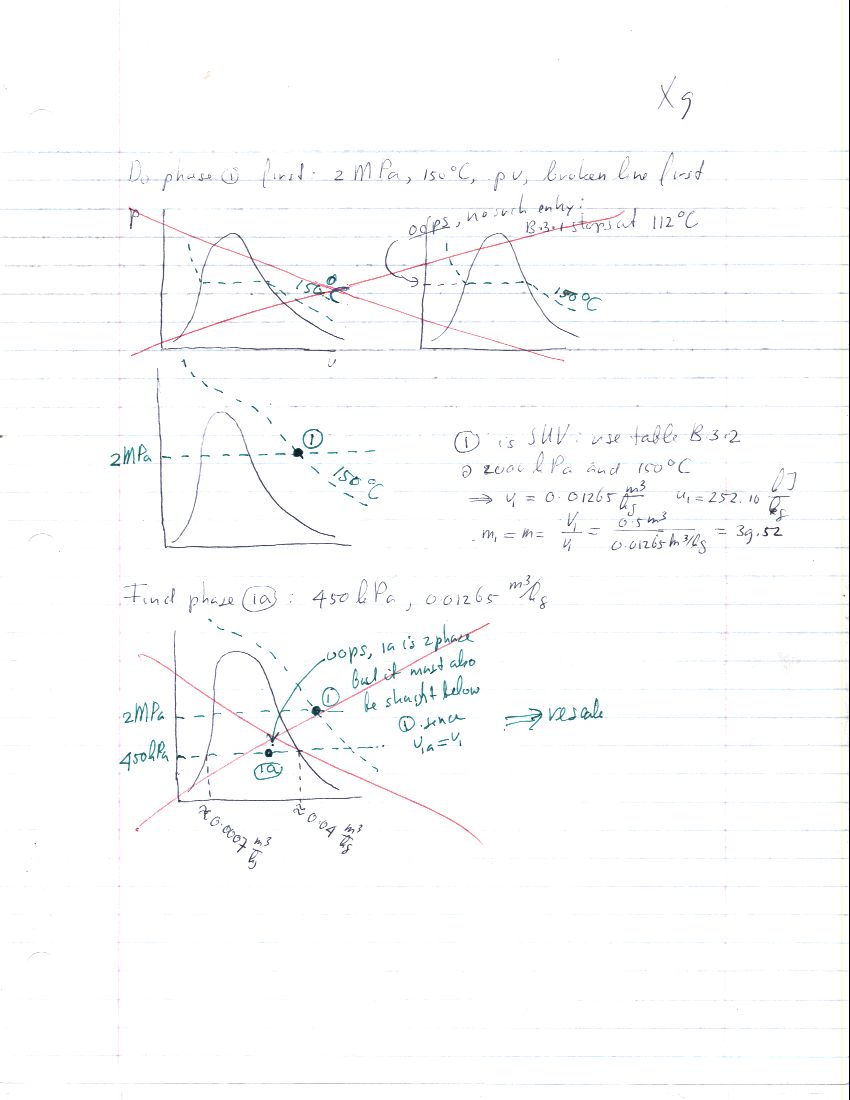 X9
Do phase ① first: 2 MPa, 150°C, pv, broken line first
oops, no such entry:
B.3.1 stops at 112°C
P
150°C
v
150°C
2MPa
①
150°C
① is SHV: use table B.3.2
@ 2000 kPa and 150°C
⇒ v₁ = 0.01265 m³/kg u₁ = 252.10 kJ/kg
m₁ = m = V₁/v₁ = 0.5 m³/0.01265 m³/kg = 39.52
Find phase 1a: 450 kPa, 0.01265 m³/kg
oops, 1a is 2 phase
but it must also
be straight below
① since
v1a = v₁
⇒ rescale
2MPa
①
450kPa
1a
≈ 0.0007 m³/kg
≈ 0.04 m³/kg